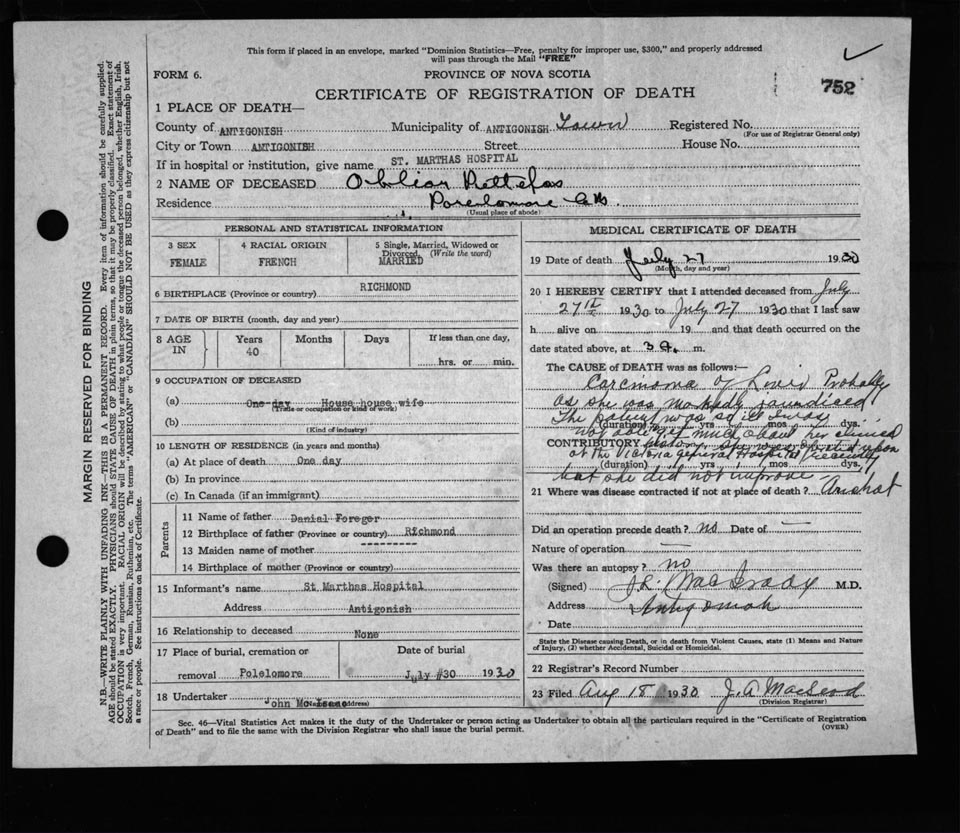 This form if placed in an envelope, marked "Dominion Statistics—Free, penalty for improper use, $300," and properly addressed
will pass through the Mail "FREE"
FORM 6.
PROVINCE OF NOVA SCOTIA
752
CERTIFICATE OF REGISTRATION OF DEATH
1 PLACE OF DEATH—
County of ANTIGONISH Municipality of ANTIGONISH Town Registered No.
(For use of Registrar General only)
City or Town ANTIGONISH Street House No.
If in hospital or institution, give name ST. MARTHAS HOSPITAL
2 NAME OF DECEASED
Residence
(Usual place of abode)
PERSONAL AND STATISTICAL INFORMATION
3 SEX
FEMALE
4 RACIAL ORIGIN
FRENCH
5 Single, Married, Widowed or
Divorced (Write the word)
MARRIED
6 BIRTHPLACE (Province or country) RICHMOND
7 DATE OF BIRTH (month, day and year)
8 AGE IN
Years
40
Months
Days
If less than one day,
hrs. or min.
9 OCCUPATION OF DECEASED
(a) One day House house wife
(Trade or occupation or kind of work)
(b)
(Kind of industry)
10 LENGTH OF RESIDENCE (in years and months)
(a) At place of death One day
(b) In province
(c) In Canada (if an immigrant)
Parents
11 Name of father Danial Foreger
12 Birthplace of father (Province or country) Richmond
13 Maiden name of mother ---------
14 Birthplace of mother (Province or country)
15 Informant's name St Marthas Hospital
Address Antigonish
16 Relationship to deceased None
17 Place of burial, cremation or
removal Polelomore
Date of burial
July #30 1930
18 Undertaker John McIsaac
(Name and address)
MEDICAL CERTIFICATE OF DEATH
19 Date of death July 27 1930
(Month, day and year)
20 I HEREBY CERTIFY that I attended deceased from July
27th 1930 to July 27 1930 that I last saw
h alive on 19 and that death occurred on
date stated above, at 3 a. m.
The CAUSE of DEATH was as follows:—
Carcinoma of Probably
as she was markedly jaundiced
The patient was so ill I was
(duration) yrs mos dys.
not able get much about her clinical
CONTRIBUTORY history. She was operated upon
at the Victoria General Hospital recently
(duration) yrs mos dys.
but she did not improve
21 Where was disease contracted if not at place of death? Arichat
Did an operation precede death? no Date of —
Nature of operation —
Was there an autopsy? no
(Signed) M.D.
Address Antigonish
Date
State the Disease causing Death, or in death from Violent Causes, state (1) Means and Nature
of Injury, (2) whether Accidental, Suicidal or Homicidal.
22 Registrar's Record Number
23 Filed Aug 18 1930 J.A MacLeod
(Division Registrar)
Sec. 46—Vital Statistics Act makes it the duty of the Undertaker or person acting as Undertaker to obtain all the particulars required in the "Certificate of Registration
of Death" and to file the same with the Division Registrar who shall issue the burial permit.
(OVER)
MARGIN RESERVED FOR BINDING
N.B.—WRITE PLAINLY WITH UNFADING INK—THIS IS A PERMANENT RECORD. Every item of information should be carefully supplied.
AGE should be stated EXACTLY. PHYSICIANS should STATE CAUSE OF DEATH in plain terms, so that it may be properly classified. Exact statement of
OCCUPATION is very important. RACIAL ORIGIN will be described by stating to what people or tongue the deceased person belonged, whether English, Irish,
Scotch, French, German, Russian, Ruthenian, etc. The terms "AMERICAN" or "CANADIAN" SHOULD NOT BE USED as they express citizenship but not
a race or people. See instructions on back of Certificate.